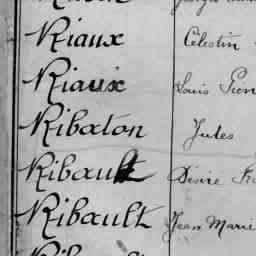 Riaux Célestin
Riaux Louis
Ribaton Jules
Ribault Désiré
Ribault Jean Marie